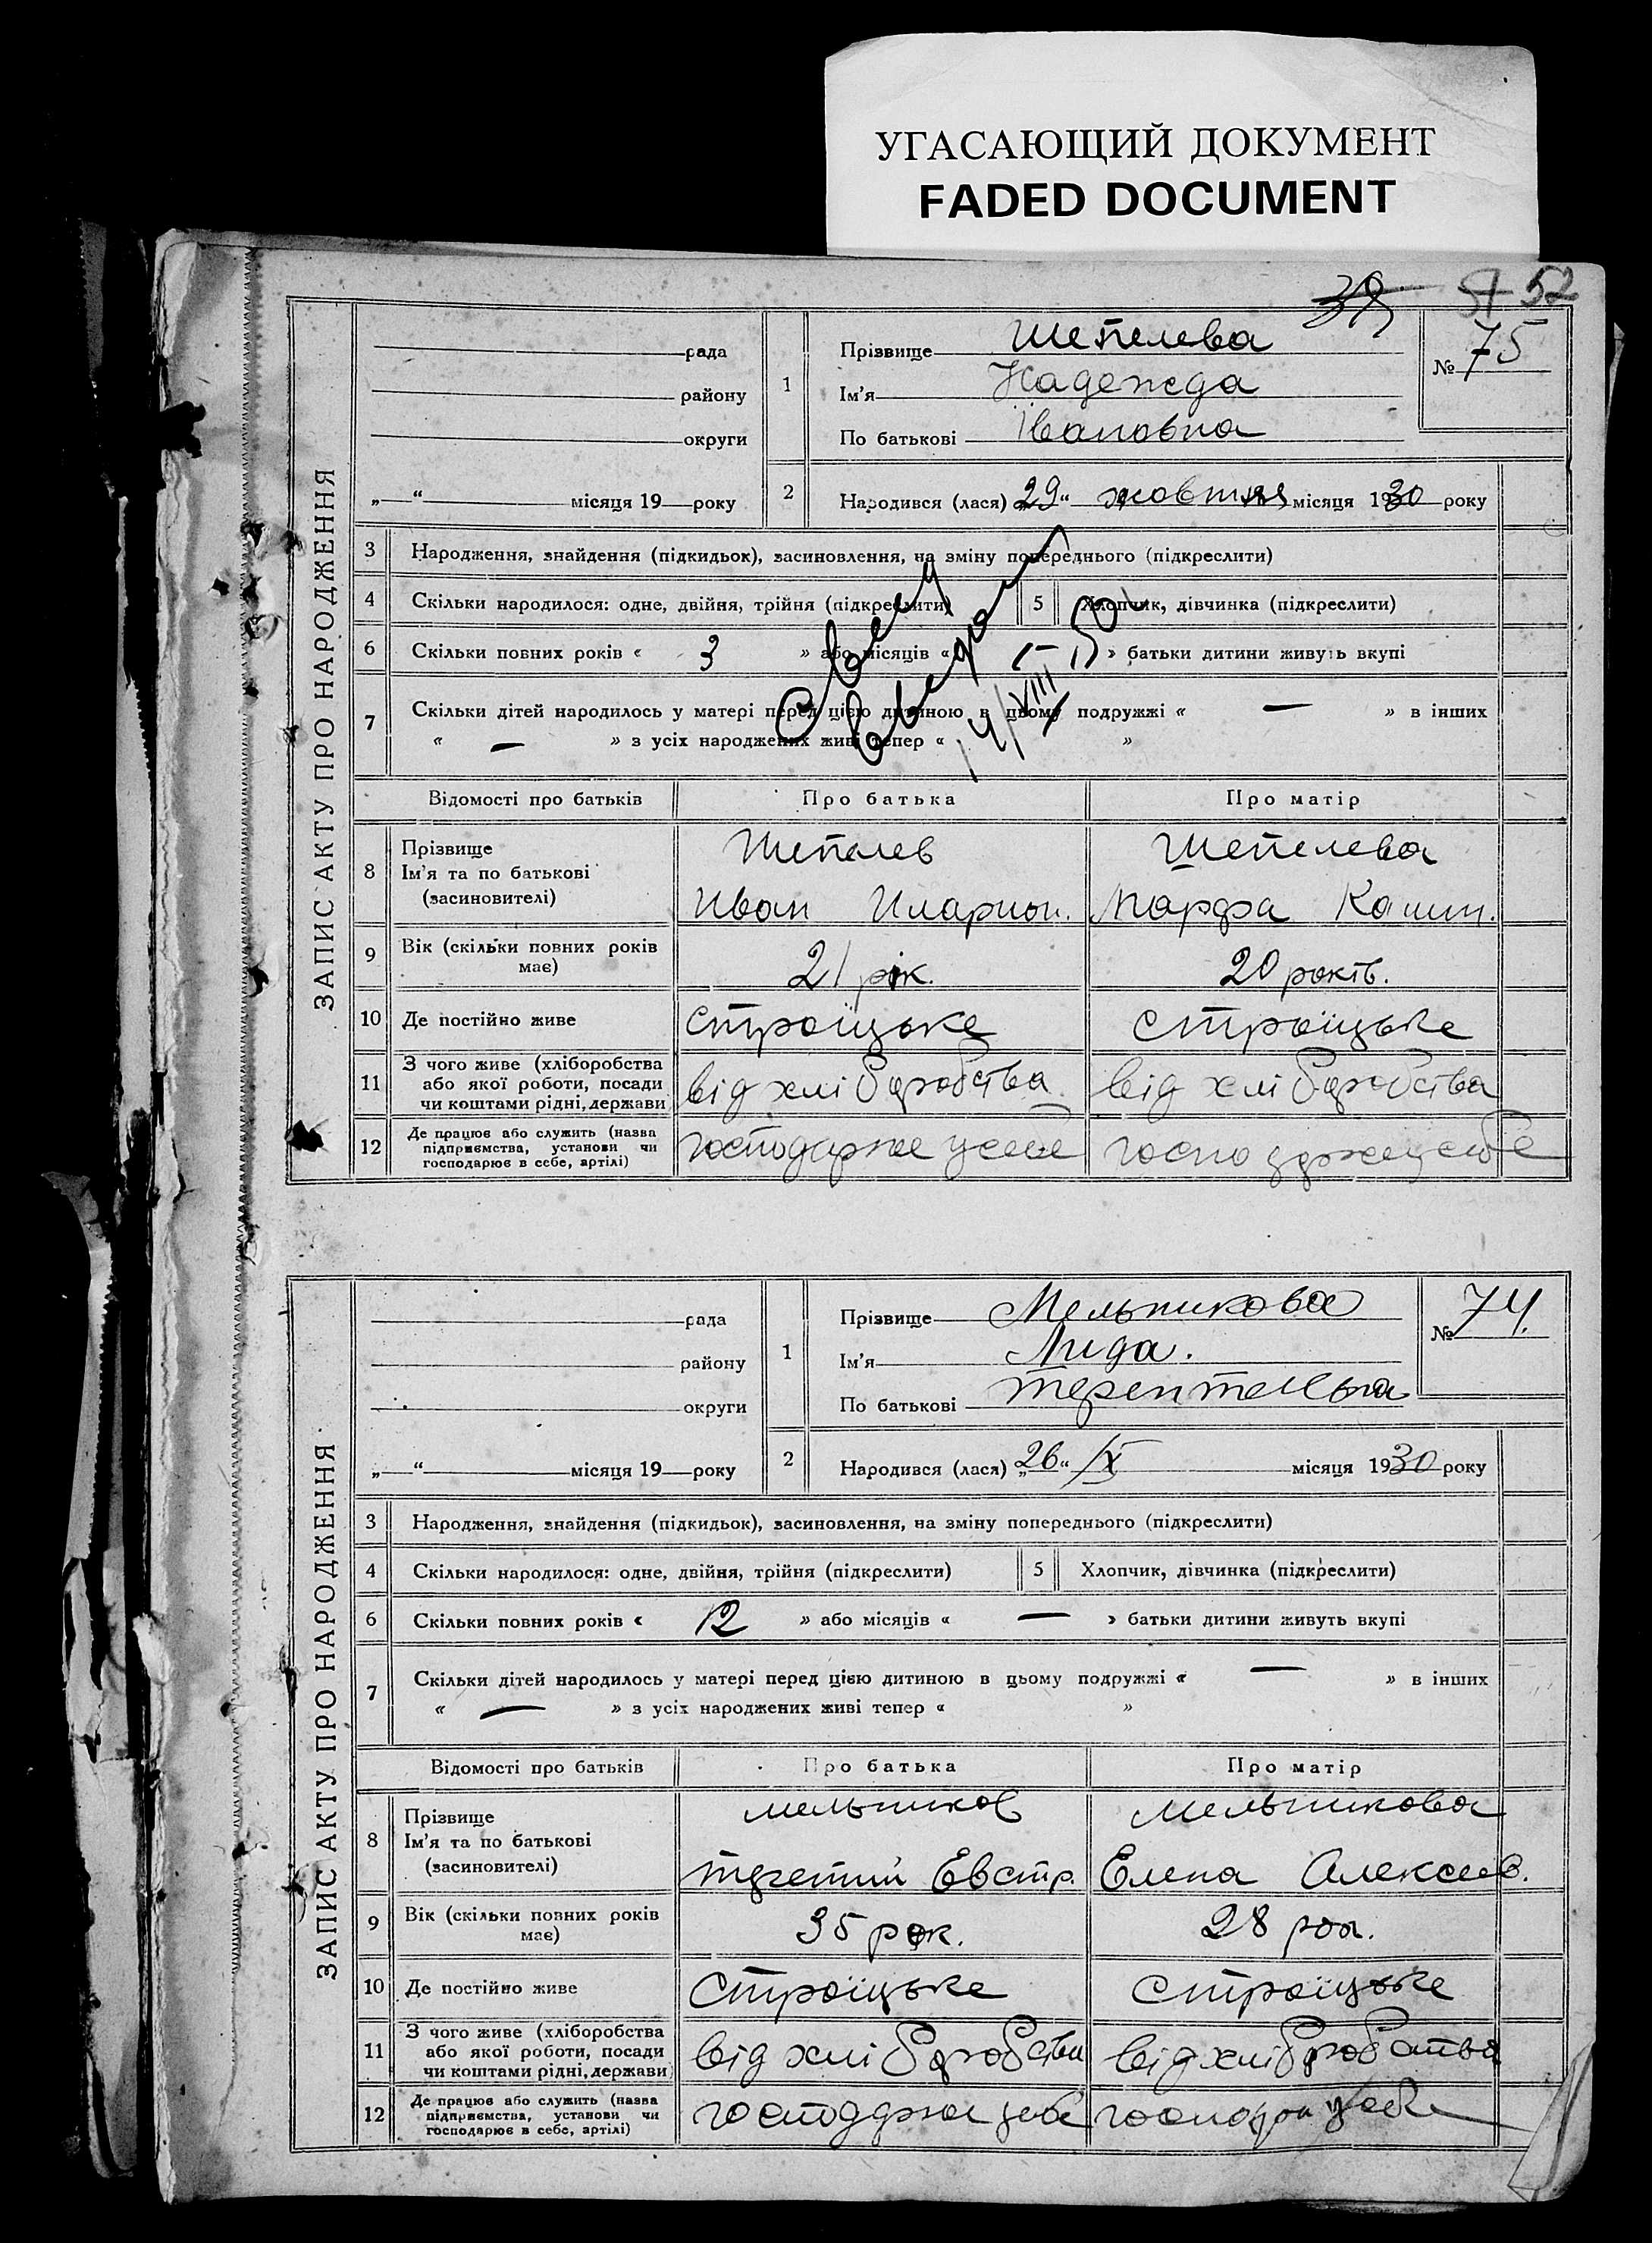 УГАСАЮЩИЙ ДОКУМЕНТ
FADED DOCUMENT
52
ЗАПИС АКТУ ПРО НАРОДЖЕННЯ
рада
району
округи
„ “ місяця 19 року
1
Прізвище Шепелева
Ім'я Надежда
По батькові Івановна
№ 75
2
Народився (лася) „29“ жовтня місяця 1930 року
3 Народження, знайдення (підкидьок), засиновлення, на зміну попереднього (підкреслити)
4 Скільки народилося: одне, двійня, трійня (підкреслити) 5 Хлопчик, дівчинка (підкреслити)
6 Скільки повних років « 3 » або місяців « — » батьки дитини живуть вкупі
7 Скільки дітей народилось у матері перед цією дитиною в цьому подружжі « — » в інших
« — » з усіх народжених живі тепер « »
14/VIII 50
Відомості про батьків Про батька Про матір
8 Прізвище Шепелев Шепелева
Ім'я та по батькові
(засиновителі) Иван Иларион. Марфа
9 Вік (скільки повних років має) 21 рік. 20 років.
10 Де постійно живе Строїцьке Строїцьке
11 З чого живе (хліборобства
або якої роботи, посади
чи коштами рідні, держави) від хліборобства від хліборобства
12 Де працює або служить (назва
підприємства, установи чи
господарює в себе, артілі)
ЗАПИС АКТУ ПРО НАРОДЖЕННЯ
рада
району
округи
„ “ місяця 19 року
1
Прізвище Мельникова
Ім'я Лида.
По батькові
№ 74.
2
Народився (лася) „26“ /X місяця 1930 року
3 Народження, знайдення (підкидьок), засиновлення, на зміну попереднього (підкреслити)
4 Скільки народилося: одне, двійня, трійня (підкреслити) 5 Хлопчик, дівчинка (підкреслити)
6 Скільки повних років « 12 » або місяців « — » батьки дитини живуть вкупі
7 Скільки дітей народилось у матері перед цією дитиною в цьому подружжі « — » в інших
« — » з усіх народжених живі тепер « »
Відомості про батьків Про батька Про матір
8 Прізвище Мельников Мельникова
Ім'я та по батькові
(засиновителі) Евстр. Елена Алексеев.
9 Вік (скільки повних років має) 35 рок. 28
10 Де постійно живе Строїцьке Строїцьке
11 З чого живе (хліборобства
або якої роботи, посади
чи коштами рідні, держави) від хліборобства від хліборобства
12 Де працює або служить (назва
підприємства, установи чи
господарює в себе, артілі)